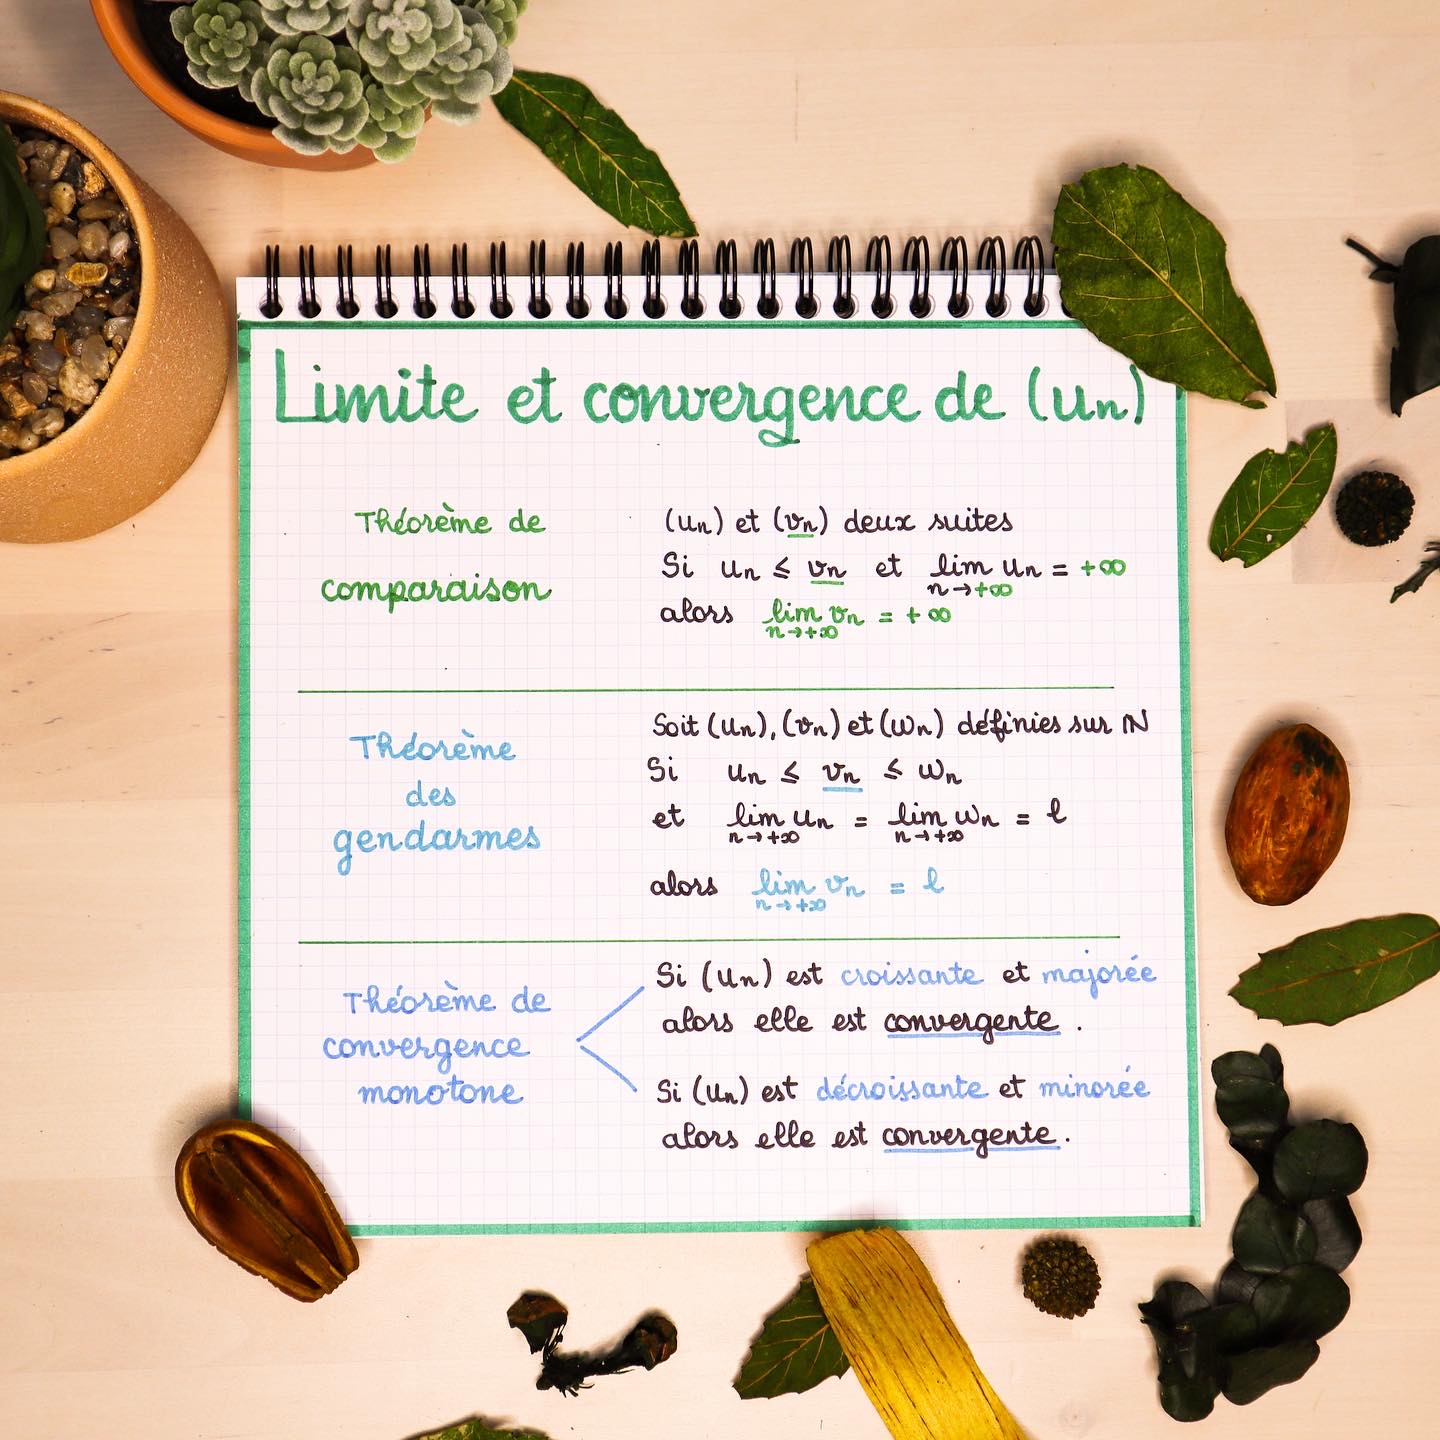 Limite et convergence de (un)
Théorème de
comparaison
(un) et (vn) deux suites
Si un ≤ vn et lim un = +∞
n→+∞
alors lim vn = +∞
n→+∞
Théorème
des
gendarmes
Soit (un), (vn) et (wn) définies sur ℕ
Si un ≤ vn ≤ wn
et lim un = lim wn = l
n→+∞ n→+∞
alors lim vn = l
n→+∞
Théorème de
convergence
monotone
Si (un) est croissante et majorée
alors elle est convergente .
Si (un) est décroissante et minorée
alors elle est convergente.